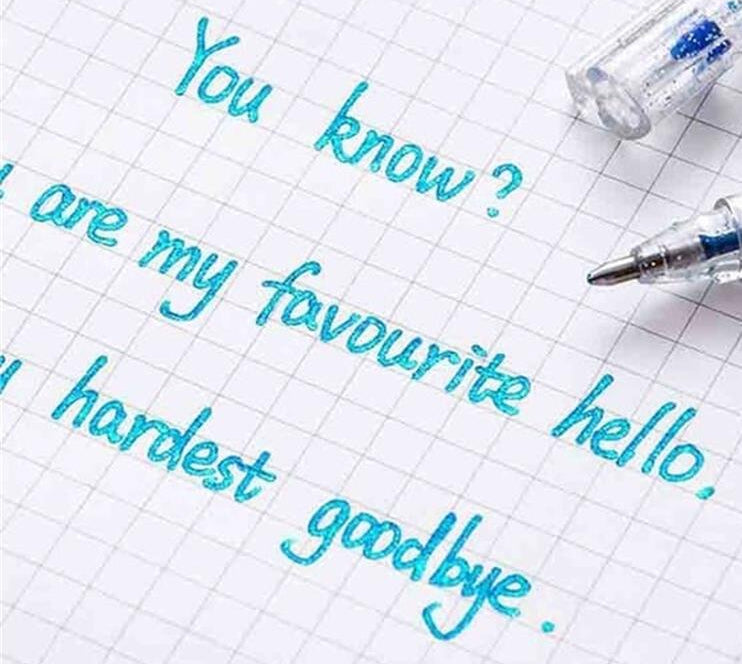 You know?
are my favourite hello,
hardest goodbye.